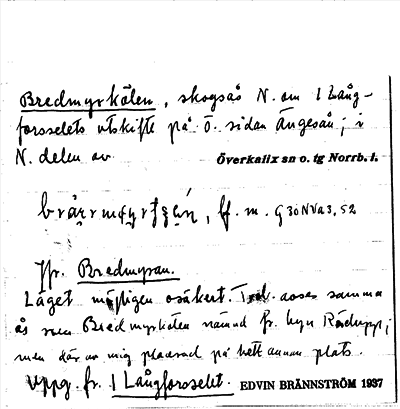 Bredmyrkälen, skogsås N. om 1 Lång-
forsselets utskifte på ö. sidan Ängesån; i
N. delen av Överkalix sn o. tg Norrb. l.
ff. m. G30NVa3,52
Jfr. Bredmyran.
Läget möjligen osäkert. Trol. avses samma
ås som Bredmyrkälen nämnd fr. byn Räktupp;
men där av mig placerad på helt annan plats.
Uppg. fr. 1 Långforsselet. EDVIN BRÄNNSTRÖM 1937